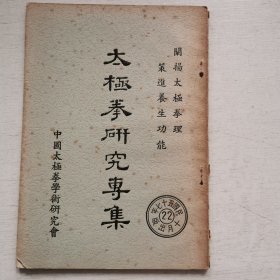 闡揚太極拳理
策進養生功能
太極拳研究專集
中國太極拳學術研究會
22